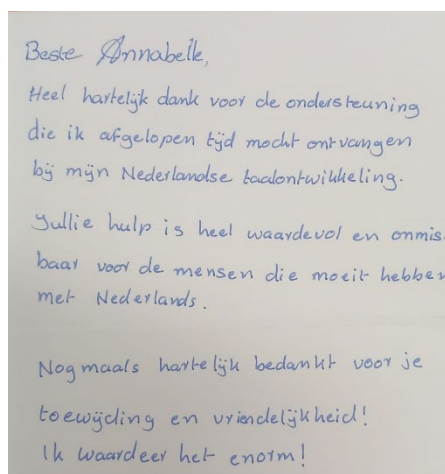 Beste Annabelle,
Heel hartelijk dank voor de ondersteuning
die ik afgelopen tijd mocht ontvangen
bij mijn Nederlandse taalontwikkeling.
Jullie hulp is heel waardevol en onmis-
baar voor de mensen die moeit hebben
met Nederlands.
Nogmaals hartelijk bedankt voor je
toewijding en vriendelijkheid!
Ik waardeer het enorm!